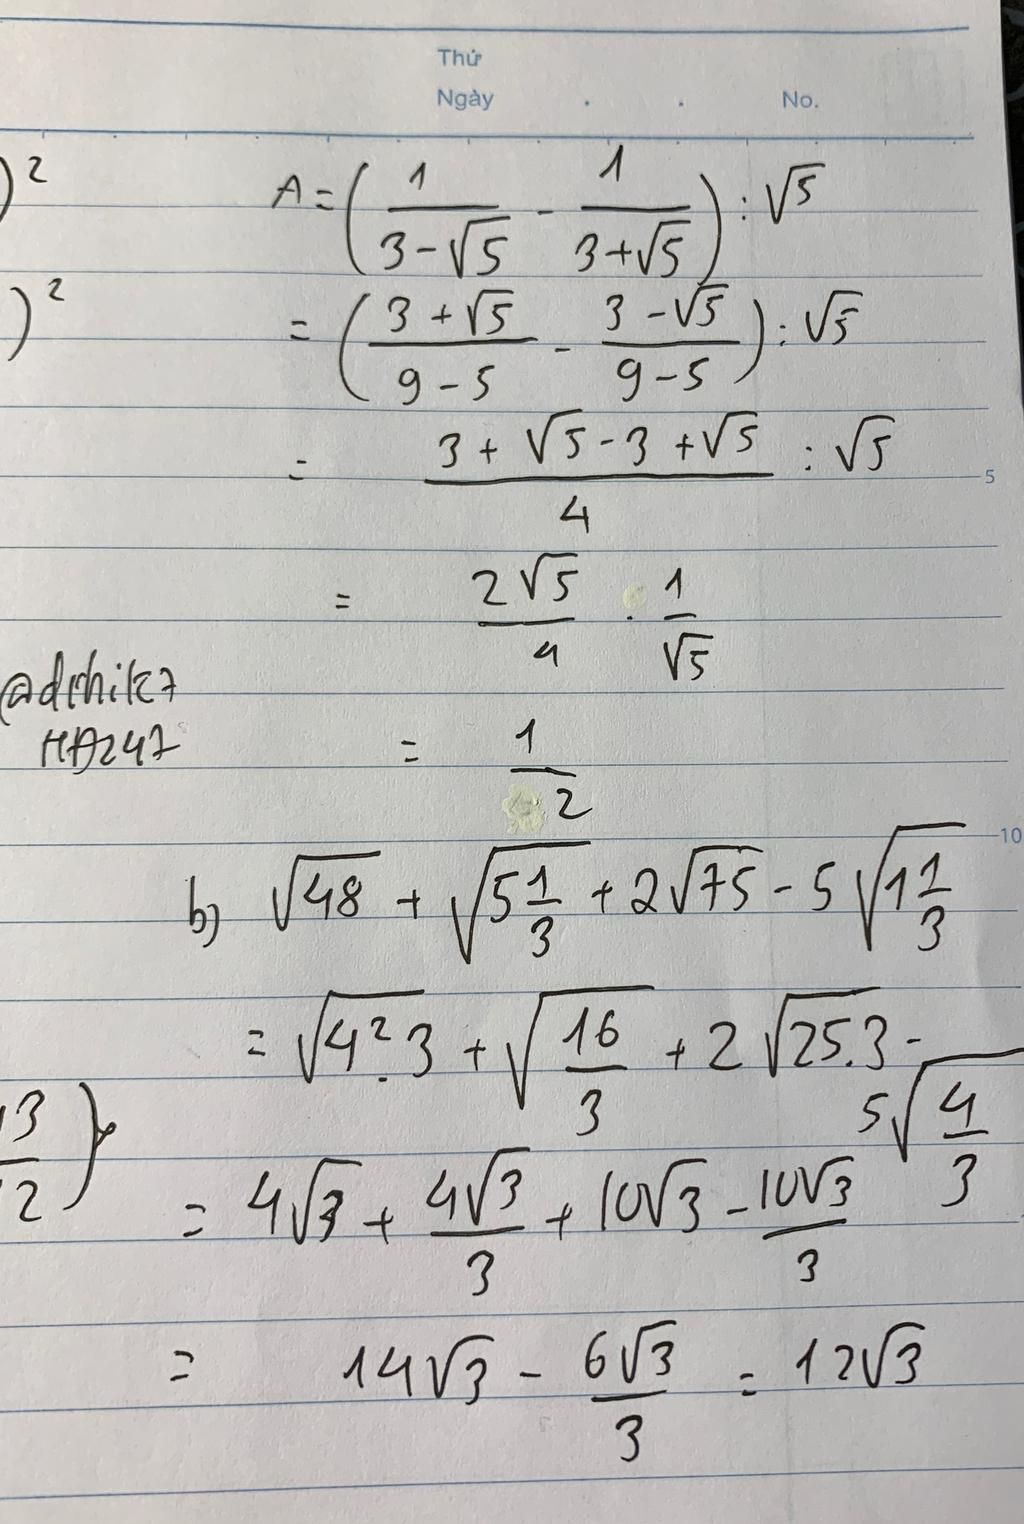 Thứ
Ngày . . No.
)²
A = (1/(3-√5) - 1/(3+√5)) : √5
)²
= ((3+√5)/(9-5) - (3-√5)/(9-5)) : √5
= (3+√5-3+√5)/4 : √5
5
= 2√5/4 . 1/√5
HD247
= 1/2
10
b) √48 + √(5 1/3) + 2√75 - 5√(1 1/3)
= √(4².3) + √(16/3) + 2√(25.3) - 5√(4/3)
3/2)
= 4√3 + 4√3/3 + 10√3 - 10√3/3
= 14√3 - 6√3/3 = 12√3